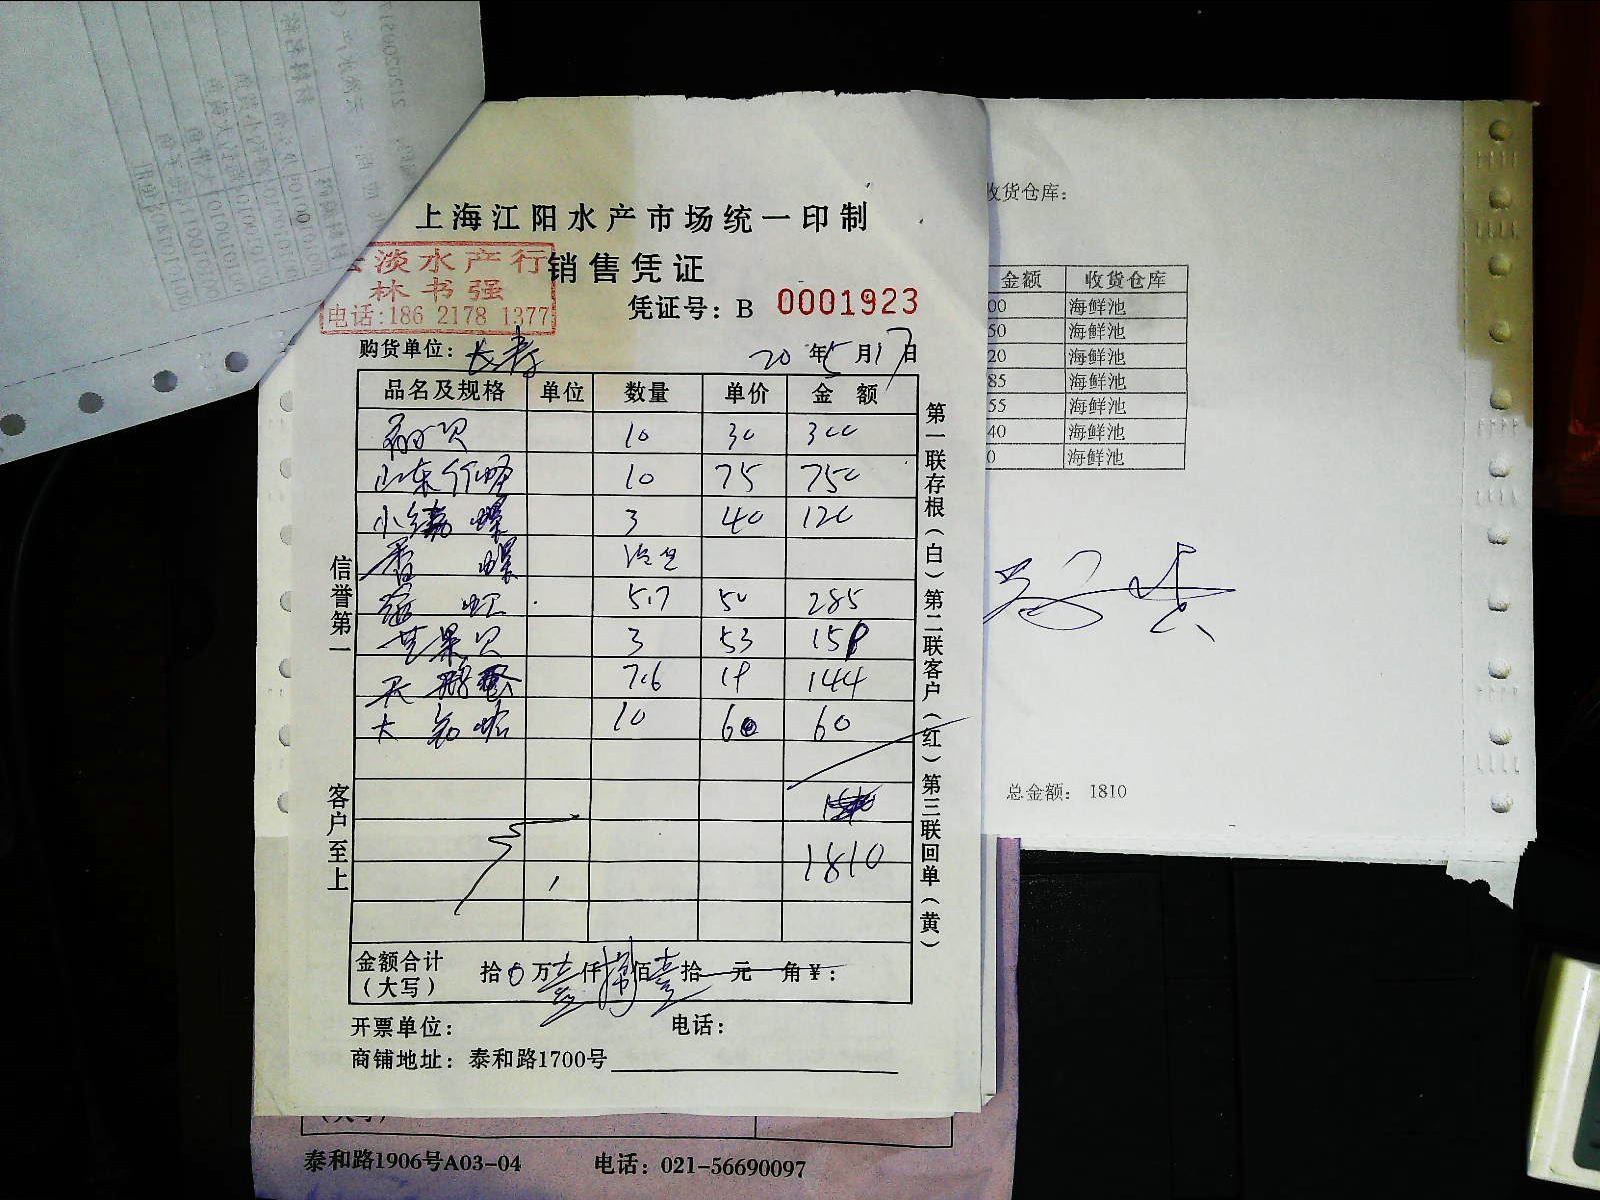 上海江阳水产市场统一印制
淡水产行
林书强
电话:186 2178 1377
销售凭证
凭证号: B 0001923
购货单位: 长寿
20 年 5 月 17 日
品名及规格 单位 数量 单价 金 额
扇贝 10 30 300
山东竹蛏 10 75 750
小 螺 3 40 120
香 螺
5.7 50 285
芒果贝 3 53
7.6 19 144
大 蛤 10 60 60
1810
金额合计
(大写)
拾 0 万 壹 仟 捌 佰 壹 拾 元 角 ¥:
开票单位: 电话:
商铺地址: 泰和路1700号
信誉第一
客户至上
第一联存根(白)第二联客户(红)第三联回单(黄)
收货仓库:
金额 收货仓库
00 海鲜池
50 海鲜池
20 海鲜池
85 海鲜池
55 海鲜池
40 海鲜池
0 海鲜池
总金额: 1810
泰和路1906号A03-04 电话: 021-56690097